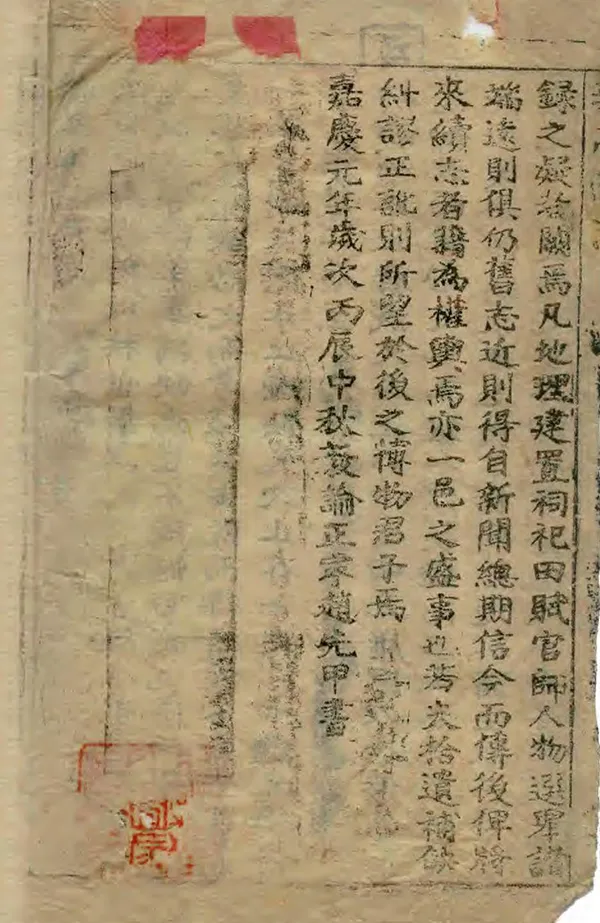 録之疑者闕焉凡地理建置祠祀田賦官師人物選舉諸
端遠則俱仍舊志近則得自新聞總期信今而傳後俾將
來續志者藉為權輿焉亦一邑之盛事也若夫拾遺補缺
糾謬正訛則所望於後之博物君子焉
嘉慶元年歲次丙辰中秋教諭正寧趙先甲書